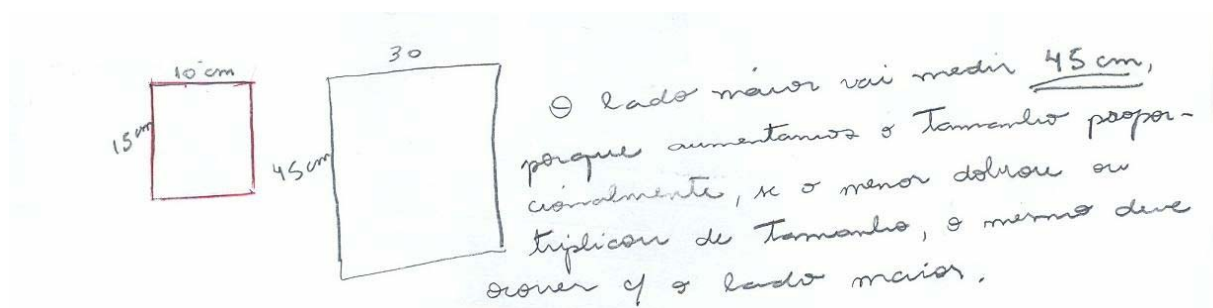 10 cm
15 cm
30
45 cm
O lado maior vai medir 45 cm,
porque aumentamos o tamanho propor-
cionalmente, se o menor dobrou ou
triplicou de tamanho, o mesmo deve
ocorrer c/ o lado maior.